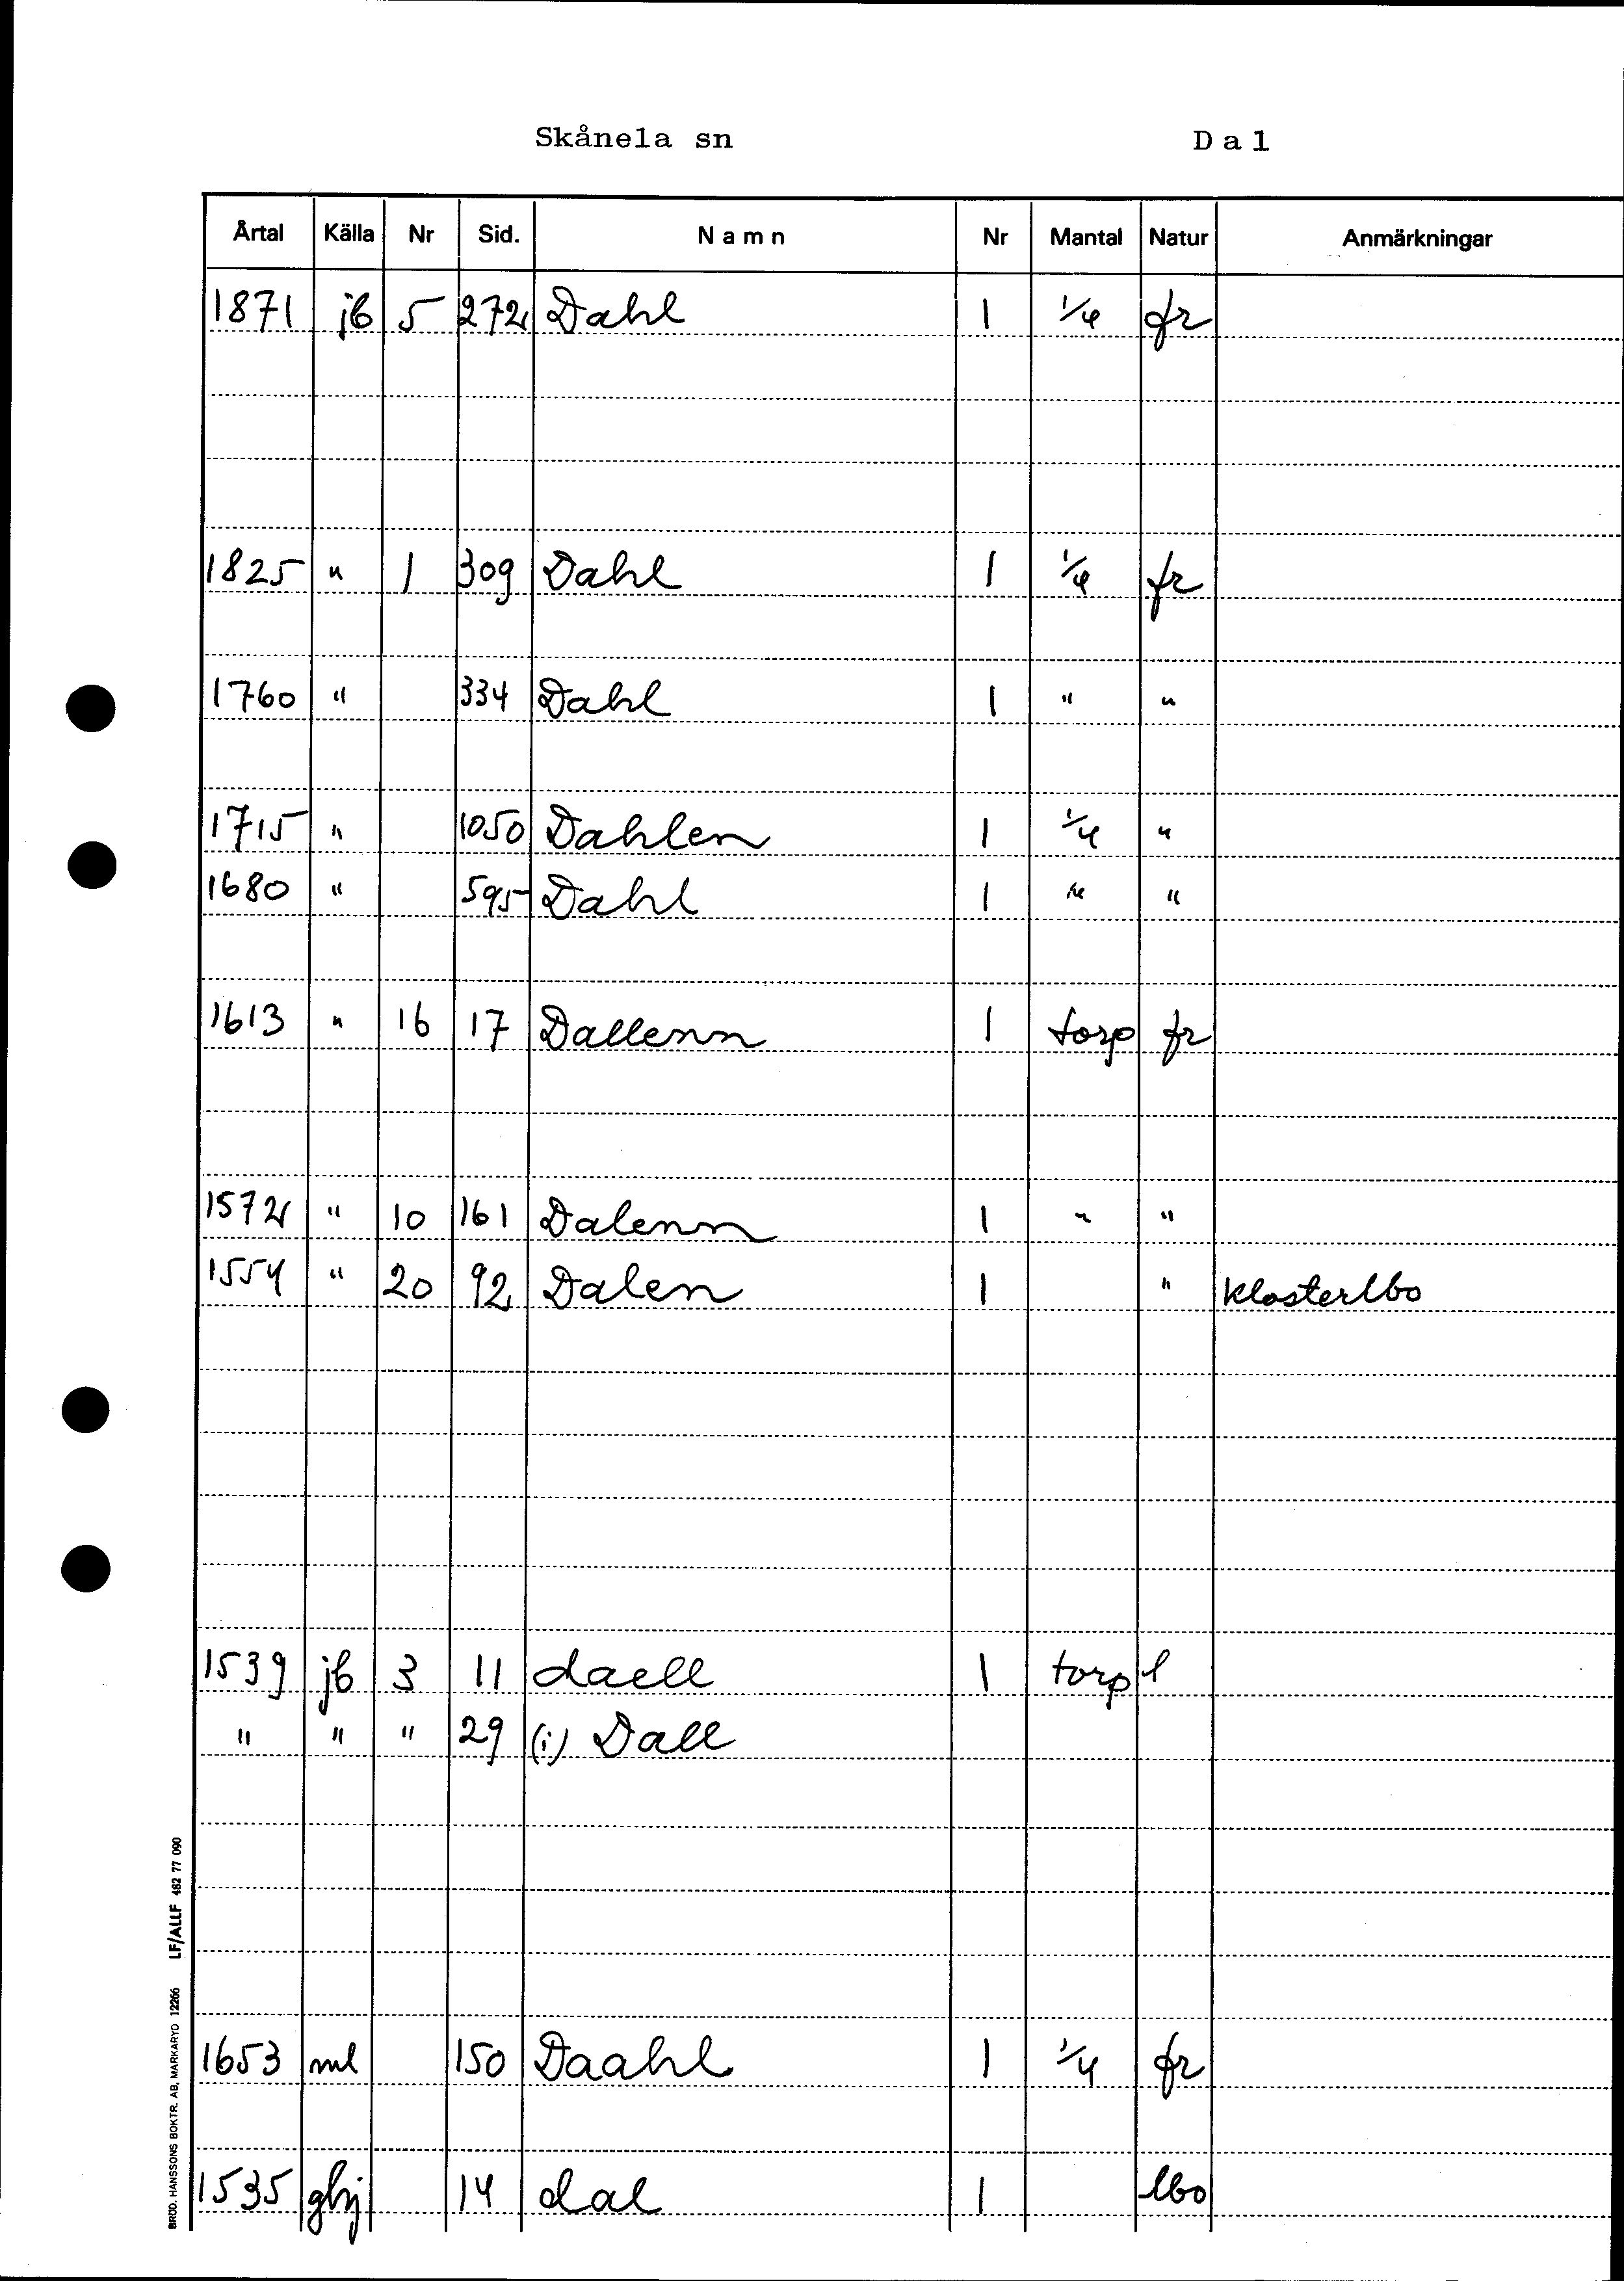 Skånela sn Dal
Årtal Källa Nr Sid. Namn Nr Mantal Natur Anmärkningar
1871 jb 5 272 Dahl 1 1/4 fr
1825 " 1 309 Dahl 1 1/4 fr
1760 " 334 Dahl 1 " "
1715 " 1050 Dahlen 1 1/4 "
1680 " 595 Dahl 1 " "
1613 " 16 17 Dallenn 1 torp fr
1572 " 10 161 Dalenn 1 " "
1554 " 20 92 Dalen 1 " klosterlbo
1539 jb 3 11 daell 1 torp l
" " " 29 (i) Dall
1653 ml 150 Daahl 1 1/4 fr
1535 ghj 14 dal 1 lbo
BRÖD. HANSSONS BOKTR. AB, MARKARYD 12266 LF/ALLF 482 77 090